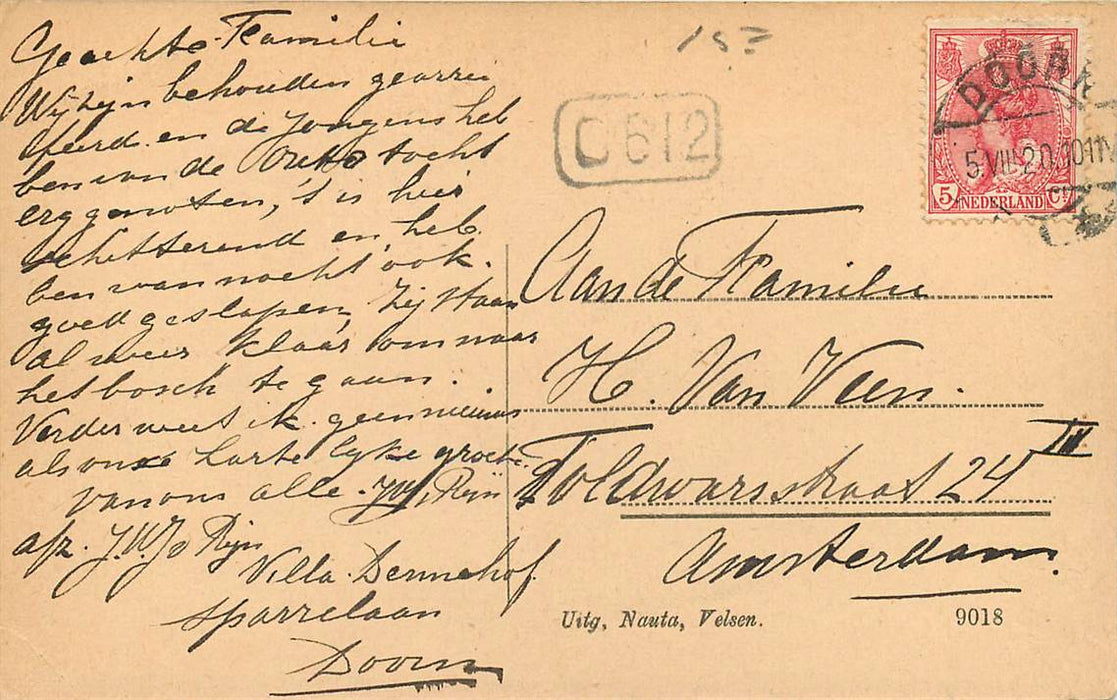 Geachte Familie
Wij zijn behouden gearri
feerd en de Jongens heb
ben van de Auto tocht
erg genoten, 't is hier
schitterend en heb
ben van nacht ook.
goed geslapen, zij staan
al weer klaar om naar
het bosch te gaan.
Verder weet ik geen nieuws
als onze hartelyke groete.
van ons alle. J.W. v Rijn
afz. J.W. v Rijn
Villa Dennehof
Sparrelaan
Doorn
153
C 612
DOORN
5.VIII.20.10-11V
5 NEDERLAND Ct
Aan de Familie
H. Van Veen.
Toldwarsstraat 24 III
Amsterdam.
Uitg, Nauta, Velsen.
9018